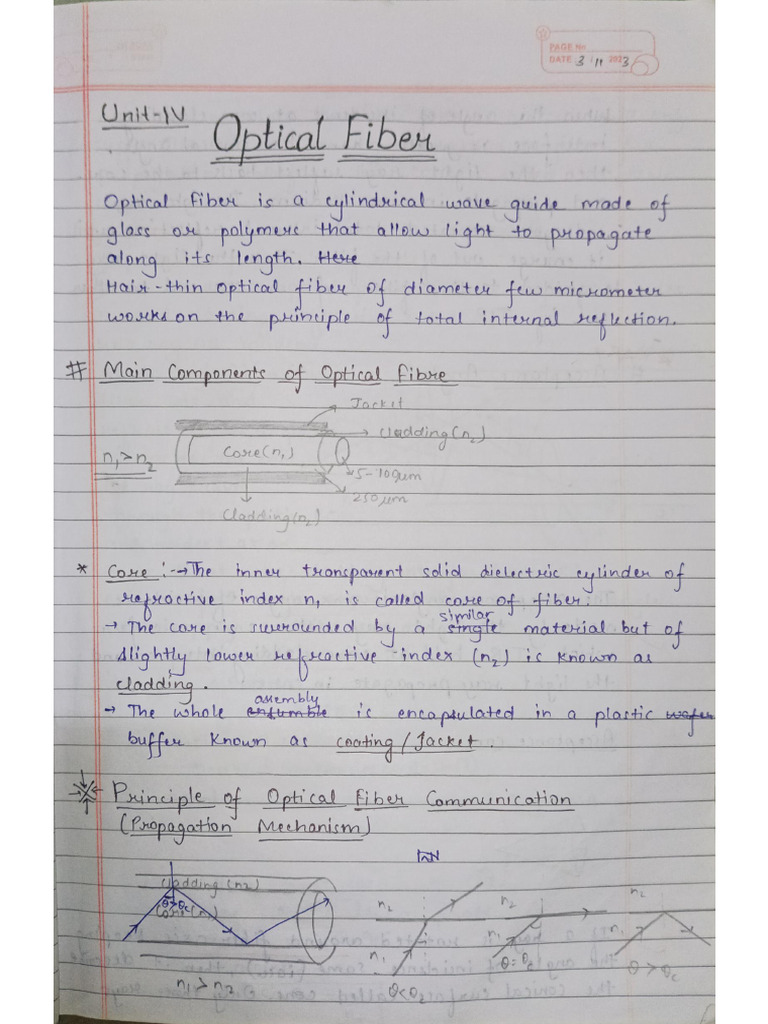 PAGE No
DATE 3 / 11 / 2023
Unit-IV
Optical Fiber
Optical fiber is a cylindrical wave guide made of
glass or polymers that allow light to propagate
along its length. Here
Hair-thin optical fiber of diameter few micrometer
works on the principle of total internal reflection.
# Main Components of Optical Fibre
Jacket
Cladding(n2)
Core(n1)
n1>n2
5-10μm
250μm
Cladding(n2)
* Core :-→ The inner transparent solid dielectric cylinder of
refractive index n1 is called core of fiber.
similar
→ The core is surrounded by a single material but of
slightly lower refractive-index (n2) is known as
cladding.
assembly
→ The whole ensumble is encapsulated in a plastic wafer
buffer known as coating/Jacket.
Principle of Optical Fiber Communication
(Propagation Mechanism)
Cladding (n2)
θ>θc
Core(n1)
n1>n2
n2
n1
θ<θ2
n2
n1
θ=θc
n2
n1
θ>θc